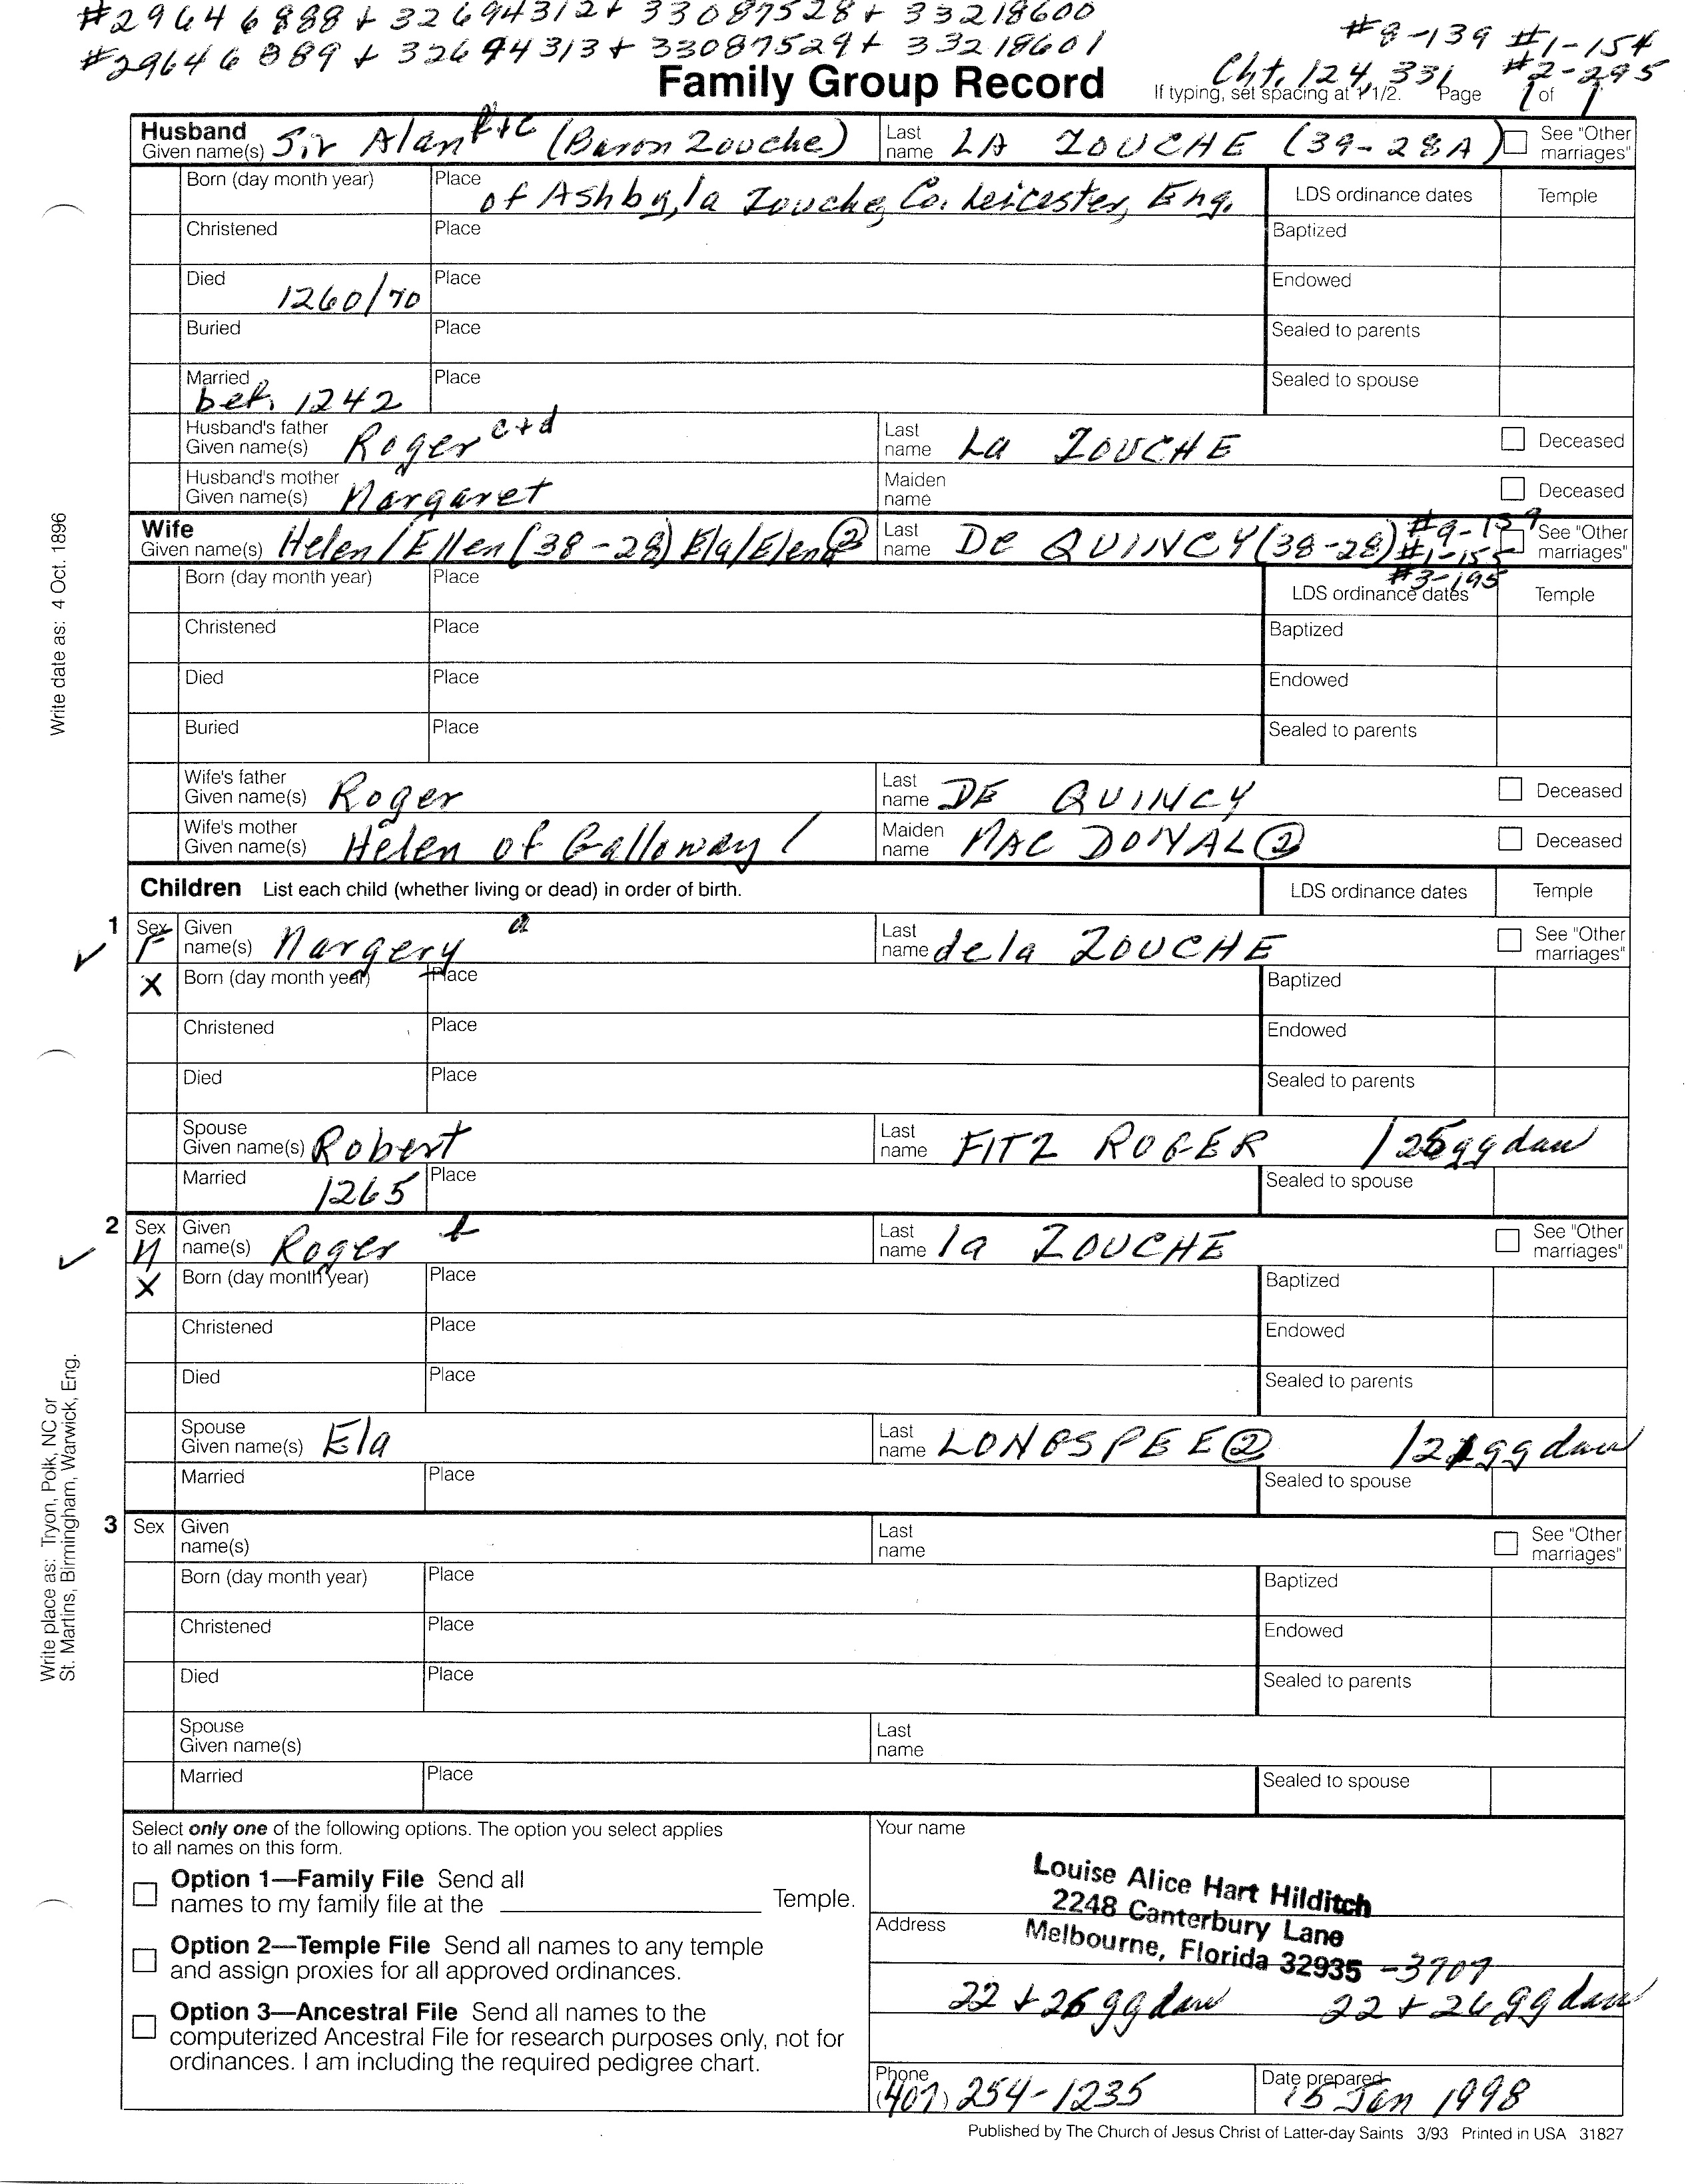 #29646888 + 32694312 + 33087528 + 33218600
#29646889 + 32694313 + 33087529 + 33218601
#8-139 #1-154
Cht. 124, 331 #2-295
Family Group Record
If typing, set spacing at 1 1/2. Page 1 of 1
Husband
Given name(s) Sir Alan (Baron Zouche) Last name LA ZOUCHE (39-28A) See "Other marriages"
Born (day month year) Place of Ashby, la Zouche, Co. Leicester, Eng. LDS ordinance dates Temple
Christened Place Baptized
Died 1260/70 Place Endowed
Buried Place Sealed to parents
Married bef. 1242 Place Sealed to spouse
Husband's father
Given name(s) Roger c+d Last name La ZOUCHE Deceased
Husband's mother
Given name(s) Margaret Maiden name Deceased
Wife
Given name(s) Helen/Ellen (38-28) Ela/Elen② Last name De QUINCY (38-28) #9-159 #1-155 #3-195 See "Other marriages"
Born (day month year) Place LDS ordinance dates Temple
Christened Place Baptized
Died Place Endowed
Buried Place Sealed to parents
Wife's father
Given name(s) Roger Last name DE QUINCY Deceased
Wife's mother
Given name(s) Helen of Galloway / Maiden name MAC DONAL② Deceased
Children List each child (whether living or dead) in order of birth. LDS ordinance dates Temple
1 Sex F Given name(s) Margery a Last name de la ZOUCHE See "Other marriages"
X Born (day month year) Place Baptized
Christened Place Endowed
Died Place Sealed to parents
Spouse
Given name(s) Robert Last name FITZ ROGER
Married 1265 Place Sealed to spouse
2 Sex M Given name(s) Roger b Last name la ZOUCHE See "Other marriages"
X Born (day month year) Place Baptized
Christened Place Endowed
Died Place Sealed to parents
Spouse
Given name(s) Ela Last name LONGSPEE②
Married Place Sealed to spouse
3 Sex Given name(s) Last name See "Other marriages"
Born (day month year) Place Baptized
Christened Place Endowed
Died Place Sealed to parents
Spouse
Given name(s) Last name
Married Place Sealed to spouse
Write date as: 4 Oct. 1896
Write place as: Tryon, Polk, NC or
St. Martins, Birmingham, Warwick, Eng.
Select only one of the following options. The option you select applies
to all names on this form.
Option 1—Family File Send all
names to my family file at the Temple.
Option 2—Temple File Send all names to any temple
and assign proxies for all approved ordinances.
Option 3—Ancestral File Send all names to the
computerized Ancestral File for research purposes only, not for
ordinances. I am including the required pedigree chart.
Your name
Louise Alice Hart Hilditch
Address
2248 Canterbury Lane
Melbourne, Florida 32935 -3707
22 + 26 gg dau 22 + 26 gg dau
Phone (407) 254-1235 Date prepared 15 Jan 1998
Published by The Church of Jesus Christ of Latter-day Saints 3/93 Printed in USA 31827